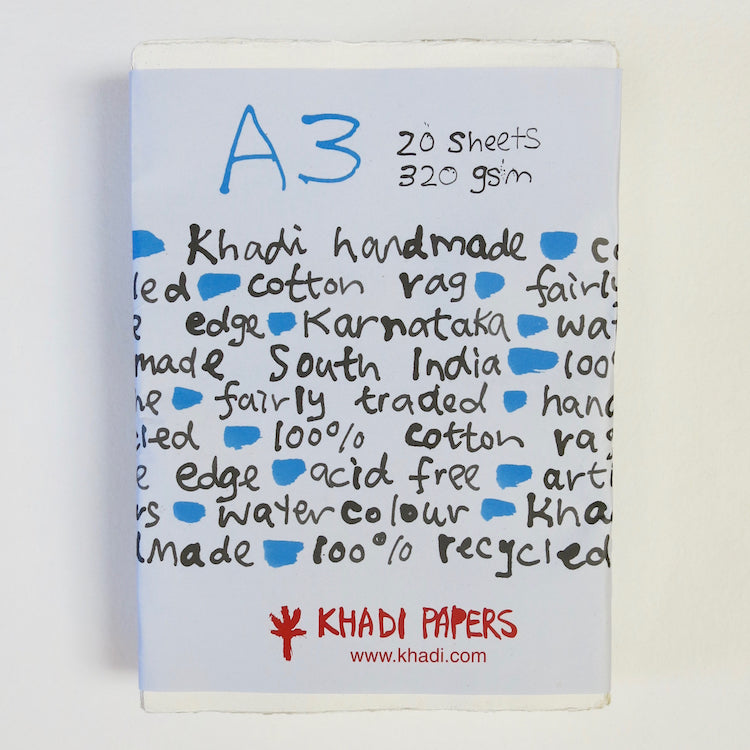 A3
20 Sheets
320 gsm
Khadi handmade co
led cotton rag fairly
e edge Karnataka wat
made South India 100%
ne fairly traded hand
cled 100% cotton rag
e edge acid free arti
rs watercolour Kha
lmade 100% recycled
KHADI PAPERS
www.khadi.com